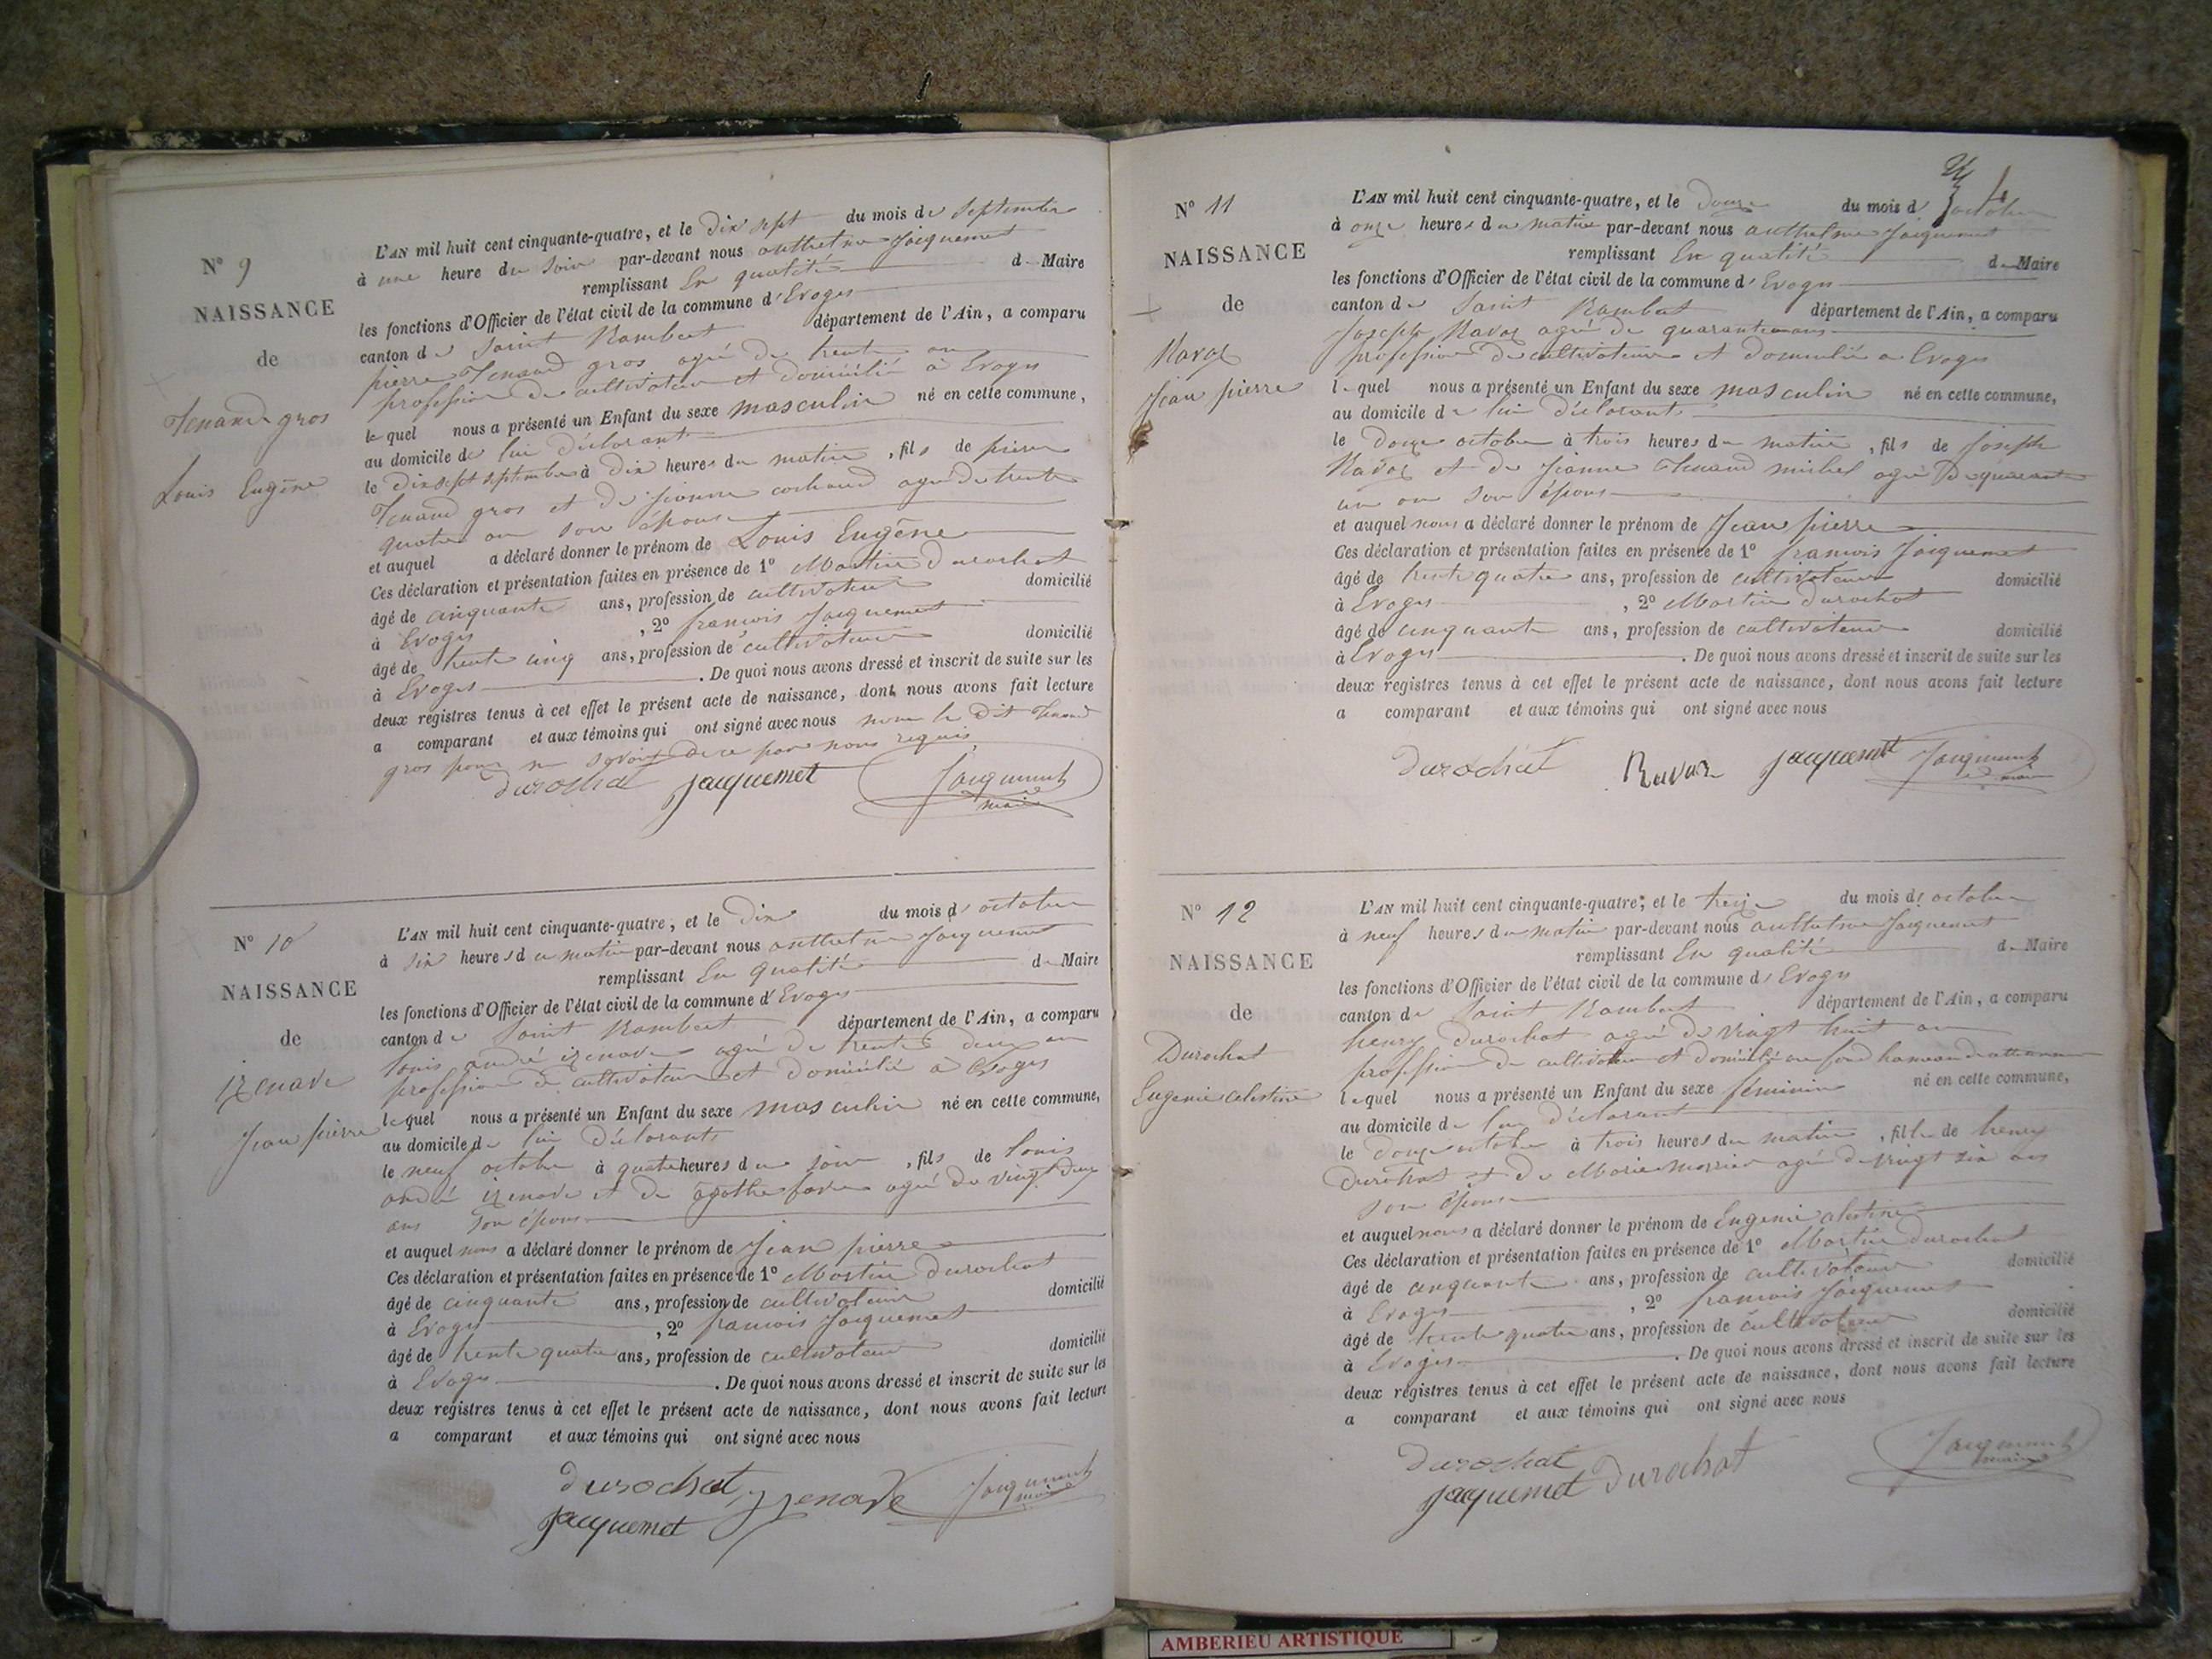 N° 9
NAISSANCE
de
Tenand gros
Louis Eugène
L'AN mil huit cent cinquante-quatre, et le dix sept du mois de septembre
à une heure du soir par-devant nous anthelme Jacquemet
remplissant En qualité de Maire
les fonctions d'Officier de l'état civil de la commune d'Evoges
canton de Saint Rambert département de l'Ain, a comparu
pierre Tenand gros agé de trente an
profession de cultivateur et domicilié à Evoges
lequel nous a présenté un Enfant du sexe masculin né en cette commune,
au domicile de lui déclarant
le dix sept septembre à dix heures du matin, fils de pierre
Tenand gros et de jeanne cochaud agé de trente
quatre an son épouse
et auquel a déclaré donner le prénom de Louis Eugène
Ces déclaration et présentation faites en présence de 1° Martin durochat
âgé de cinquante ans, profession de cultivateur domicilié
à Evoges, 2° francois Jacquemet
âgé de trente cinq ans, profession de cultivateur domicilié
à Evoges. De quoi nous avons dressé et inscrit de suite sur les
deux registres tenus à cet effet le présent acte de naissance, dont nous avons fait lecture
a comparant et aux témoins qui ont signé avec nous non le dit Tenand
gros pour ne savoir de ce par nous requis
durochat jacquemet Jacquemet
maire
N° 10
NAISSANCE
de
izenave
Jean pierre
L'AN mil huit cent cinquante-quatre, et le dix du mois d'octobre
à six heures du matin par-devant nous anthelme Jacquemet
remplissant En qualité de Maire
les fonctions d'Officier de l'état civil de la commune d'Evoges
canton de Saint Rambert département de l'Ain, a comparu
louis andré izenave agé de trente deux an
profession de cultivateur et domicilié à Evoges
lequel nous a présenté un Enfant du sexe masculin né en cette commune,
au domicile de lui déclarant
le neuf octobre à quatre heures du soir, fils de louis
andré izenave et de agathe favre agé de vingt deux
ans son épouse
et auquel nous a déclaré donner le prénom de Jean pierre
Ces déclaration et présentation faites en présence de 1° Martin durochat
âgé de cinquante ans, profession de cultivateur domicilié
à Evoges, 2° francois Jacquemet
âgé de trente quatre ans, profession de cultivateur domicilié
à Evoges. De quoi nous avons dressé et inscrit de suite sur les
deux registres tenus à cet effet le présent acte de naissance, dont nous avons fait lecture
a comparant et aux témoins qui ont signé avec nous
durochat yzenave Jacquemet
jacquemet maire
N° 11
NAISSANCE
de
Ravoz
Jean pierre
L'AN mil huit cent cinquante-quatre, et le douze du mois d'octobre
à onze heures du matin par-devant nous anthelme Jacquemet
remplissant En qualité de Maire
les fonctions d'Officier de l'état civil de la commune d'Evoges
canton de Saint Rambert département de l'Ain, a comparu
Joseph Ravoz agé de quarante ans
profession de cultivateur et domicilié a Evoges
lequel nous a présenté un Enfant du sexe masculin né en cette commune,
au domicile de lui déclarant
le douze octobre à trois heures du matin, fils de joseph
Ravoz et de jeanne Tenand michel agé de quarante
un an son épouse
et auquel nous a déclaré donner le prénom de Jean pierre
Ces déclaration et présentation faites en présence de 1° francois Jacquemet
âgé de trente quatre ans, profession de cultivateur domicilié
à Evoges, 2° Martin durochat
âgé de cinquante ans, profession de cultivateur domicilié
à Evoges. De quoi nous avons dressé et inscrit de suite sur les
deux registres tenus à cet effet le présent acte de naissance, dont nous avons fait lecture
a comparant et aux témoins qui ont signé avec nous
durochat Ravoz jacquemet Jacquemet
maire
N° 12
NAISSANCE
de
Durochat
Eugenie celestine
L'AN mil huit cent cinquante-quatre, et le treize du mois d'octobre
à neuf heures du matin par-devant nous anthelme Jacquemet
remplissant En qualité de Maire
les fonctions d'Officier de l'état civil de la commune d'Evoges
canton de Saint Rambert département de l'Ain, a comparu
henry Durochat agé de vingt huit an
profession de cultivateur et domicilié au fond hameau
lequel nous a présenté un Enfant du sexe féminin né en cette commune,
au domicile de lui déclarant
le douze octobre à trois heures du matin, fille de henry
durochat et de Marie agé de vingt six ans
son épouse
et auquel nous a déclaré donner le prénom de Eugenie celestine
Ces déclaration et présentation faites en présence de 1° Martin durochat
âgé de cinquante ans, profession de cultivateur domicilié
à Evoges, 2° francois Jacquemet
âgé de trente quatre ans, profession de cultivateur domicilié
à Evoges. De quoi nous avons dressé et inscrit de suite sur les
deux registres tenus à cet effet le présent acte de naissance, dont nous avons fait lecture
a comparant et aux témoins qui ont signé avec nous
durochat Jacquemet
jacquemet Durochat maire
AMBERIEU ARTISTIQUE